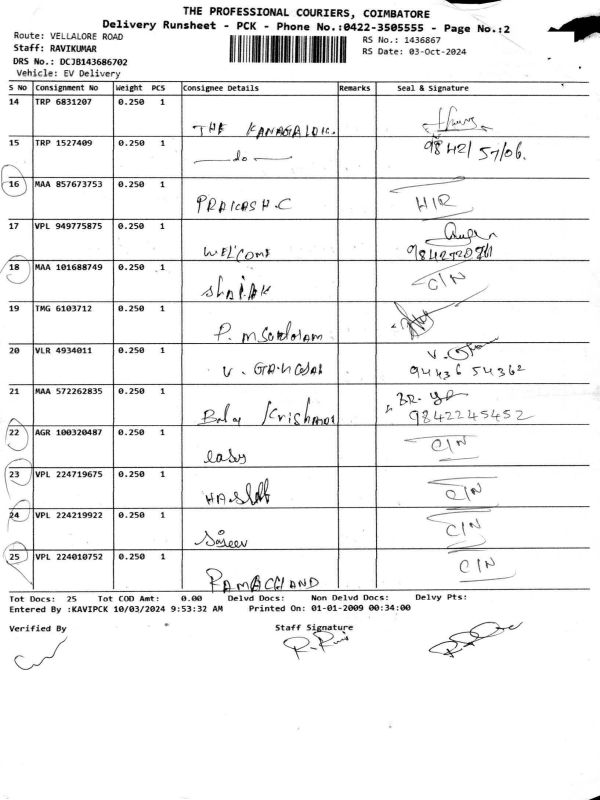 THE PROFESSIONAL COURIERS, COIMBATORE
Delivery Runsheet - PCK - Phone No.:0422-3505555 - Page No.:2
Route: VELLALORE ROAD RS No.: 1436867
Staff: RAVIKUMAR RS Date: 03-Oct-2024
DRS No.: DCJB143686702
Vehicle: EV Delivery
S No Consignment No Weight PCS Consignee Details Remarks Seal & Signature
14 TRP 6831207 0.250 1
THE
15 TRP 1527409 0.250 1 do 98421 57106.
16 MAA 857673753 0.250 1
PRAKASH.C H/R
17 VPL 949775875 0.250 1
WELCOME
18 MAA 101688749 0.250 1 C/N
19 TMG 6103712 0.250 1
P.
20 VLR 4934011 0.250 1 V.
V. 94436 54362
21 MAA 572262835 0.250 1 BR.
Bala 9842245452
22 AGR 100320487 0.250 1 C/N
easy
23 VPL 224719675 0.250 1
C/N
24 VPL 224219922 0.250 1 C/N
25 VPL 224010752 0.250 1 C/N
RAMACHAND
Tot Docs: 25 Tot COD Amt: 0.00 Delvd Docs: Non Delvd Docs: Delvy Pts:
Entered By :KAVIPCK 10/03/2024 9:53:32 AM Printed On: 01-01-2009 00:34:00
Verified By Staff Signature